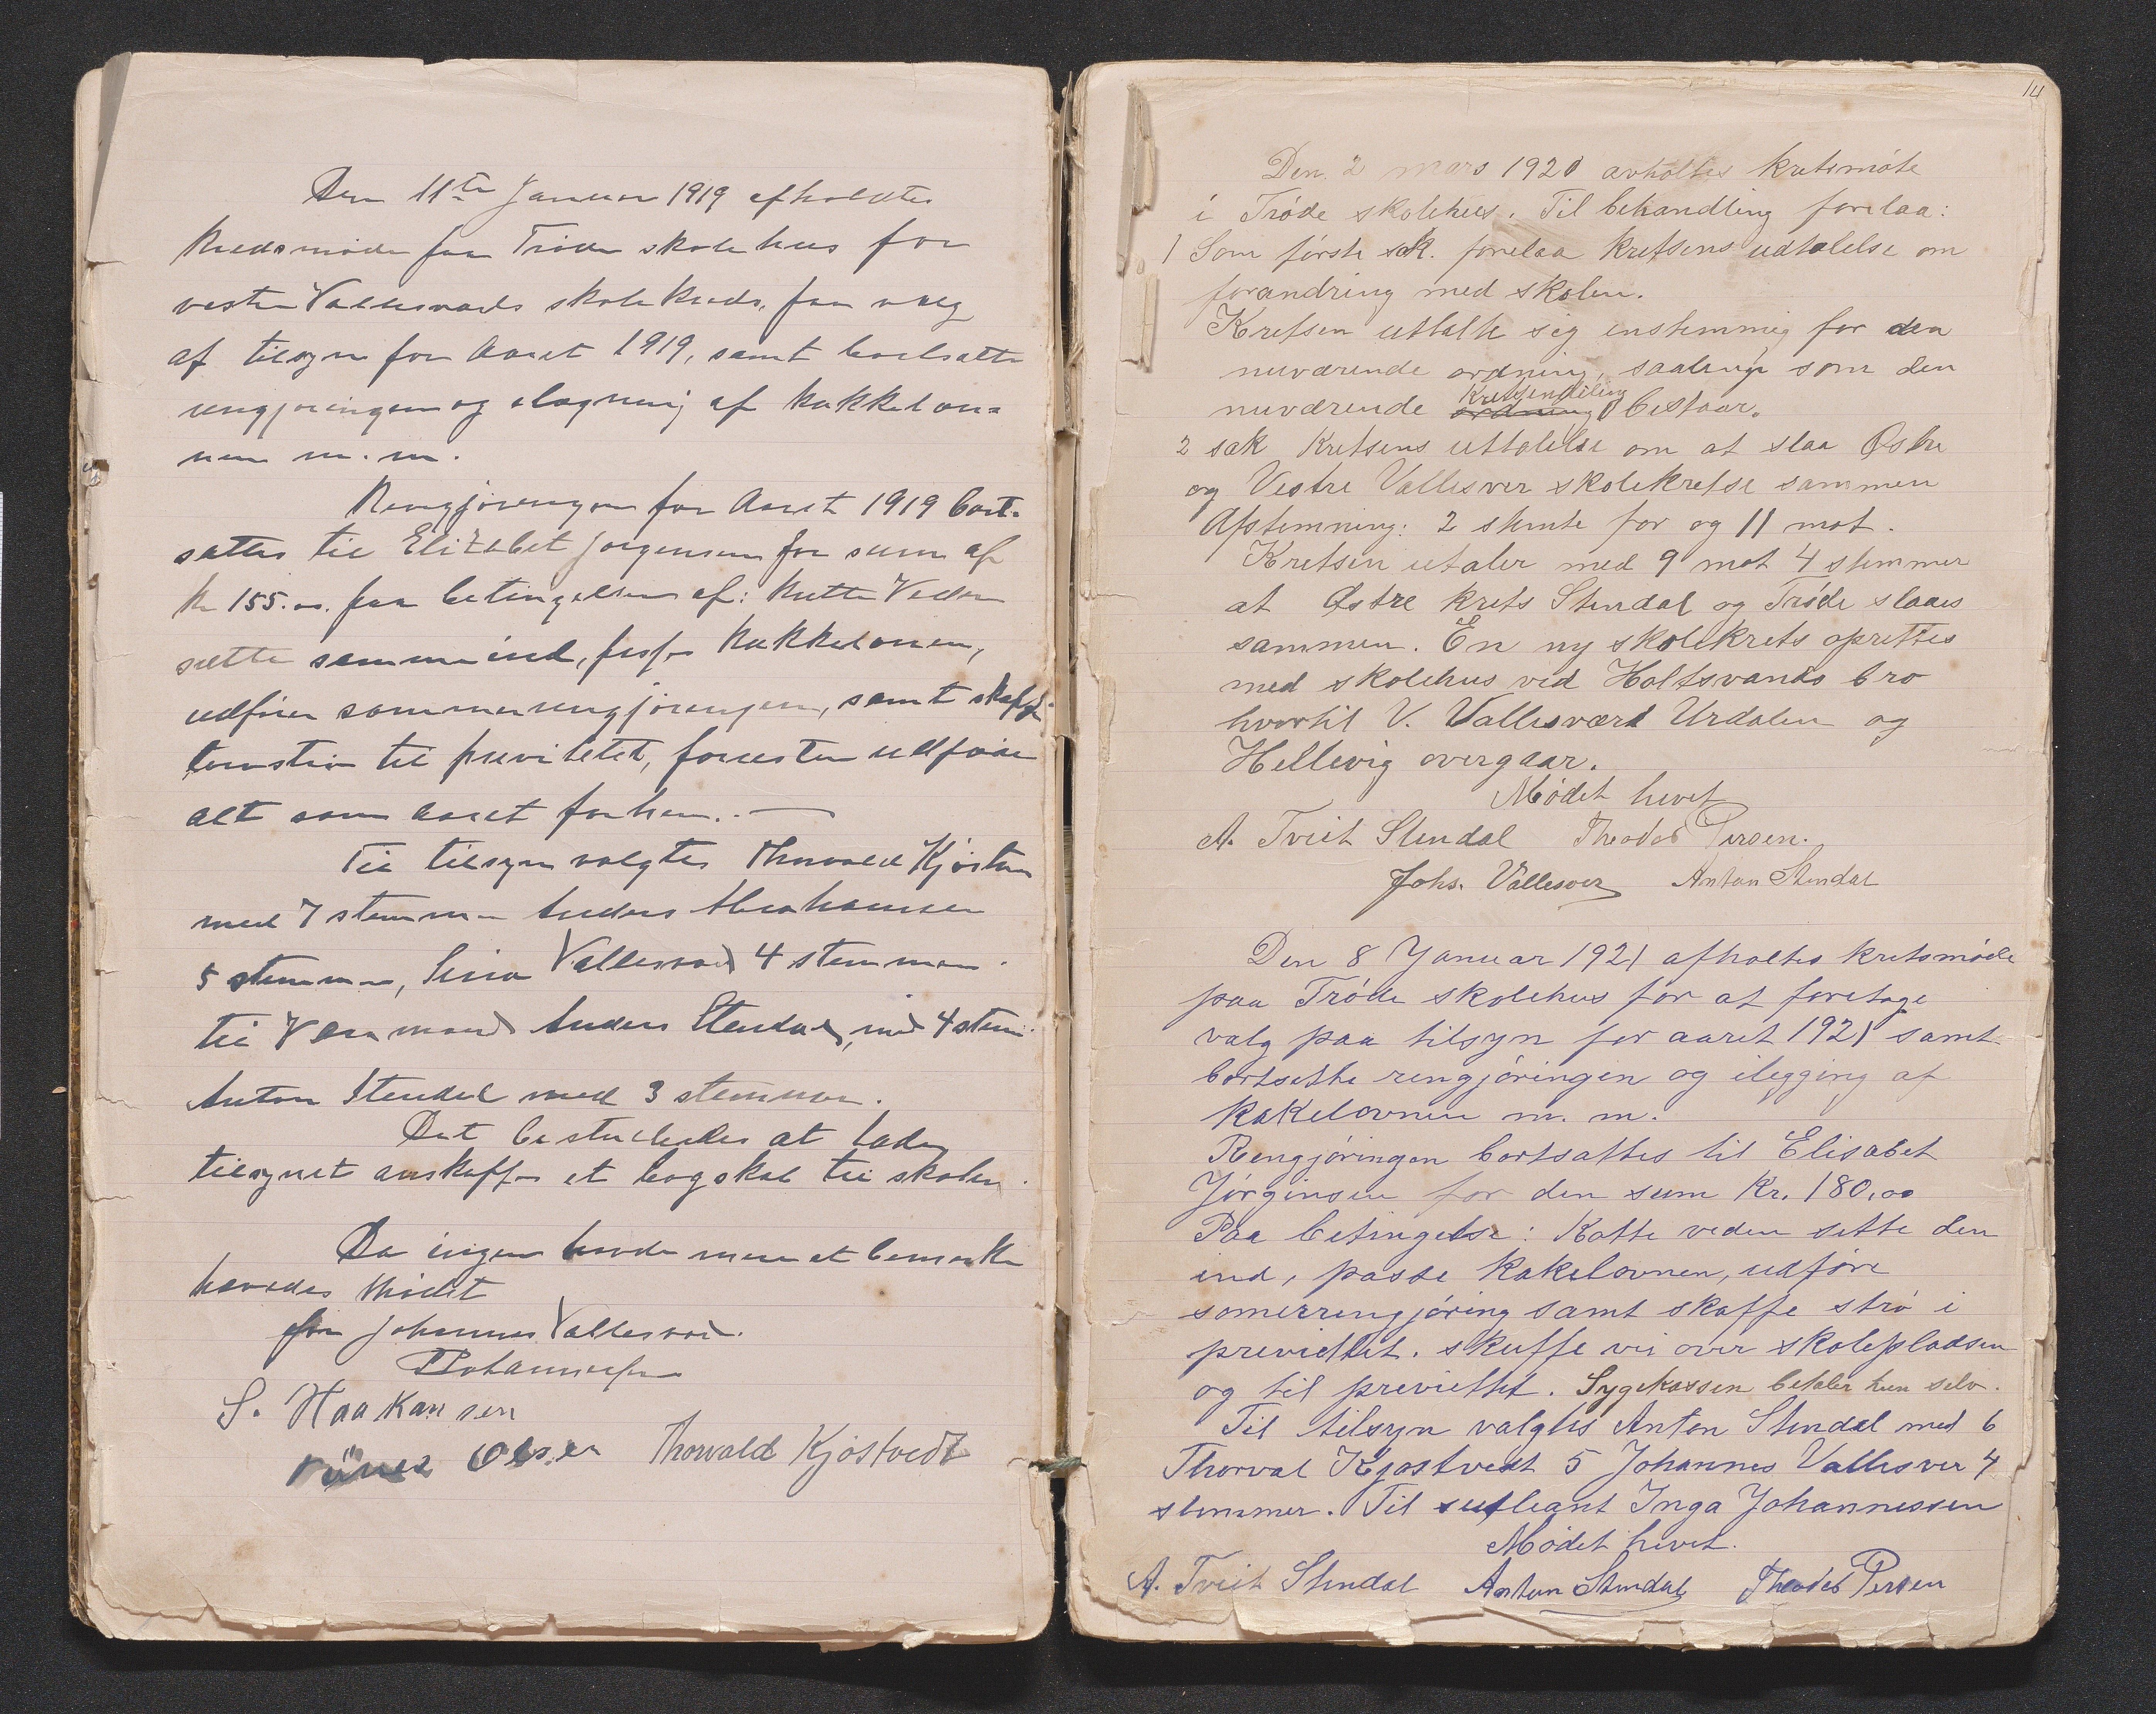 Den 11te Januar 1919 afholdtes
Kredsmøde paa Trøde skolehus for
vestre Vallesværds skolekreds, paa valg
af tilsyn for Aaret 1919, samt bortsætte
rengjøringen og ilægning af kakkelov-
nen m. m.
Rengjøringen for Aaret 1919 bort-
sattes til Elizabet Jørgensen for sum af
Kr 155.00. paa betingelsen af: Kutte Veden
sætte samme ind, passe kakkelovnen,
udføre sommerrengjøringen, samt skaffe
torvstrø til previtetet, forresten udføre
alt som aaret forhen. —
Til tilsyn valgtes Thorvald Kjøstvedt
med 7 stemmer Anders Abrahamsen
5 stemmer, Sina Vallesværd 4 stemmer
til Varamand Anders Stendal, med 4 stem.
Anton Stendal med 3 stemmer.
Det besluttedes at lade
tilsynet anskaffe et bogskab til skolen.
Da ingen havde mere at bemærke
hævedes Mødet
for Johannes Vallesværd.
S. Haakansen
Olsen Thorvald Kjøstvedt
14
Den 2 mars 1920 avholtes kretsmøte
i Trøde skolehus. Til behandling forelaa:
1 Som første sak. forelaa Kretsens udtalelse om
forandring med skolen.
Kretsen uttalte sig enstemmig for den
nuværende ordning, saalenge som den
Kretsendeling
nuværende ordning bestaar.
2 sak Kretsens uttalelse om at slaa Østre
og Vestre Vallesver skolekretse sammen
Afstemning: 2 stemte for og 11 mot.
Kretsen utaler med 9 mot 4 stemmer
at Østre krets Stendal og Trøde slaaes
sammen. En ny skolekrets oprettes
med skolehus ved Holtsvands bro
hvortil V. Vallesværd Urdalen og
Hellevig overgaar.
Mødet hevet
A. Tveit Stendal Theodor Persen.
Johs. Vallesver Anton Stendal
Den 8 Januar 1921 afholtes kretsmøde
paa Trøde skolehus for at foretage
valg paa tilsyn for aaret 1921 samt
bortsette rengjøringen og ilegging af
kakelovnen m. m.
Rengjøringen bortsattes til Elisabet
Jørginsen for den sum Kr. 180,00
Paa betingelse: Kutte veden sette den
ind, passe kakelovnen, udføre
somerrengjøring samt skaffe strø i
previettet. skuffe vei over skolepladsen
og til previettet. Sygekassen betaler hun selv.
Til tilsyn valgtes Anton Stendal med 6
Thorval Kjøstvedt 5 Johannes Vallesver 4
stemmer. Til supleant Inga Johannessen
Mødet hevet.
A. Tveit Stendal Anton Stendal Theodor Persen